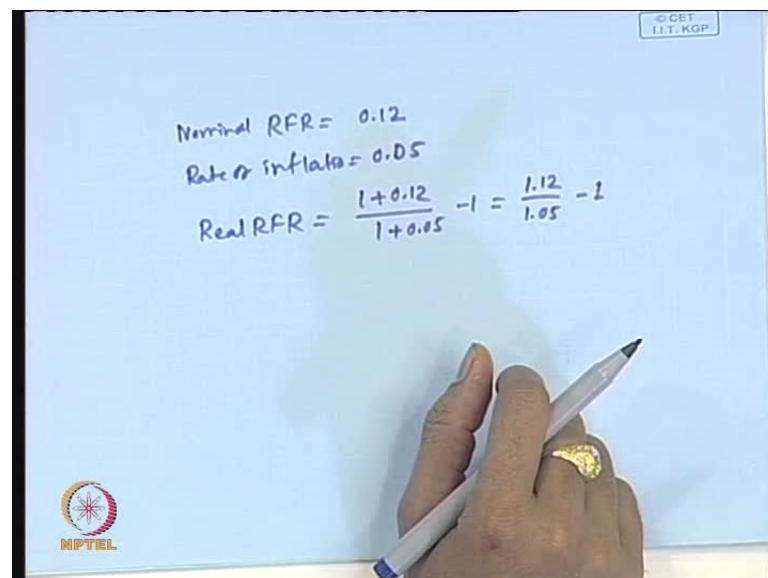 © CET
I.I.T. KGP
Nominal RFR = 0.12
Rate of inflatio = 0.05
Real RFR = \frac{1+0.12}{1+0.05} -1 = \frac{1.12}{1.05} - 1
NPTEL